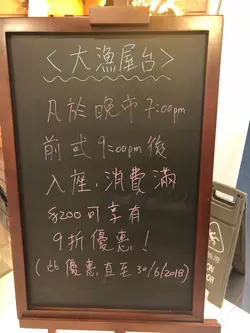 <大漁屋台>
凡於晚市7:00pm
前或9:00pm後
入座,消費滿
$200可享有
9折優惠!
(此優惠直至30/6/2018)